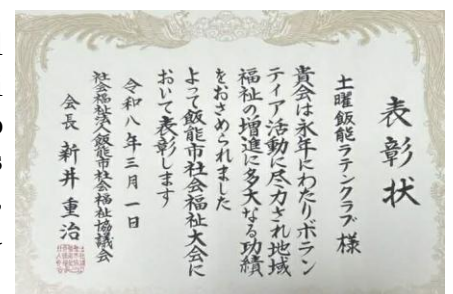 表彰状
土曜飯能ラテンクラブ 様
貴会は永年にわたりボラン
ティア活動に尽力され地域
福祉の増進に多大なる功績
をおさめられました
よって飯能市社会福祉大会に
おいて表彰します
令和八年三月一日
社会福祉法人飯能市社会福祉協議会
会長 新井重治